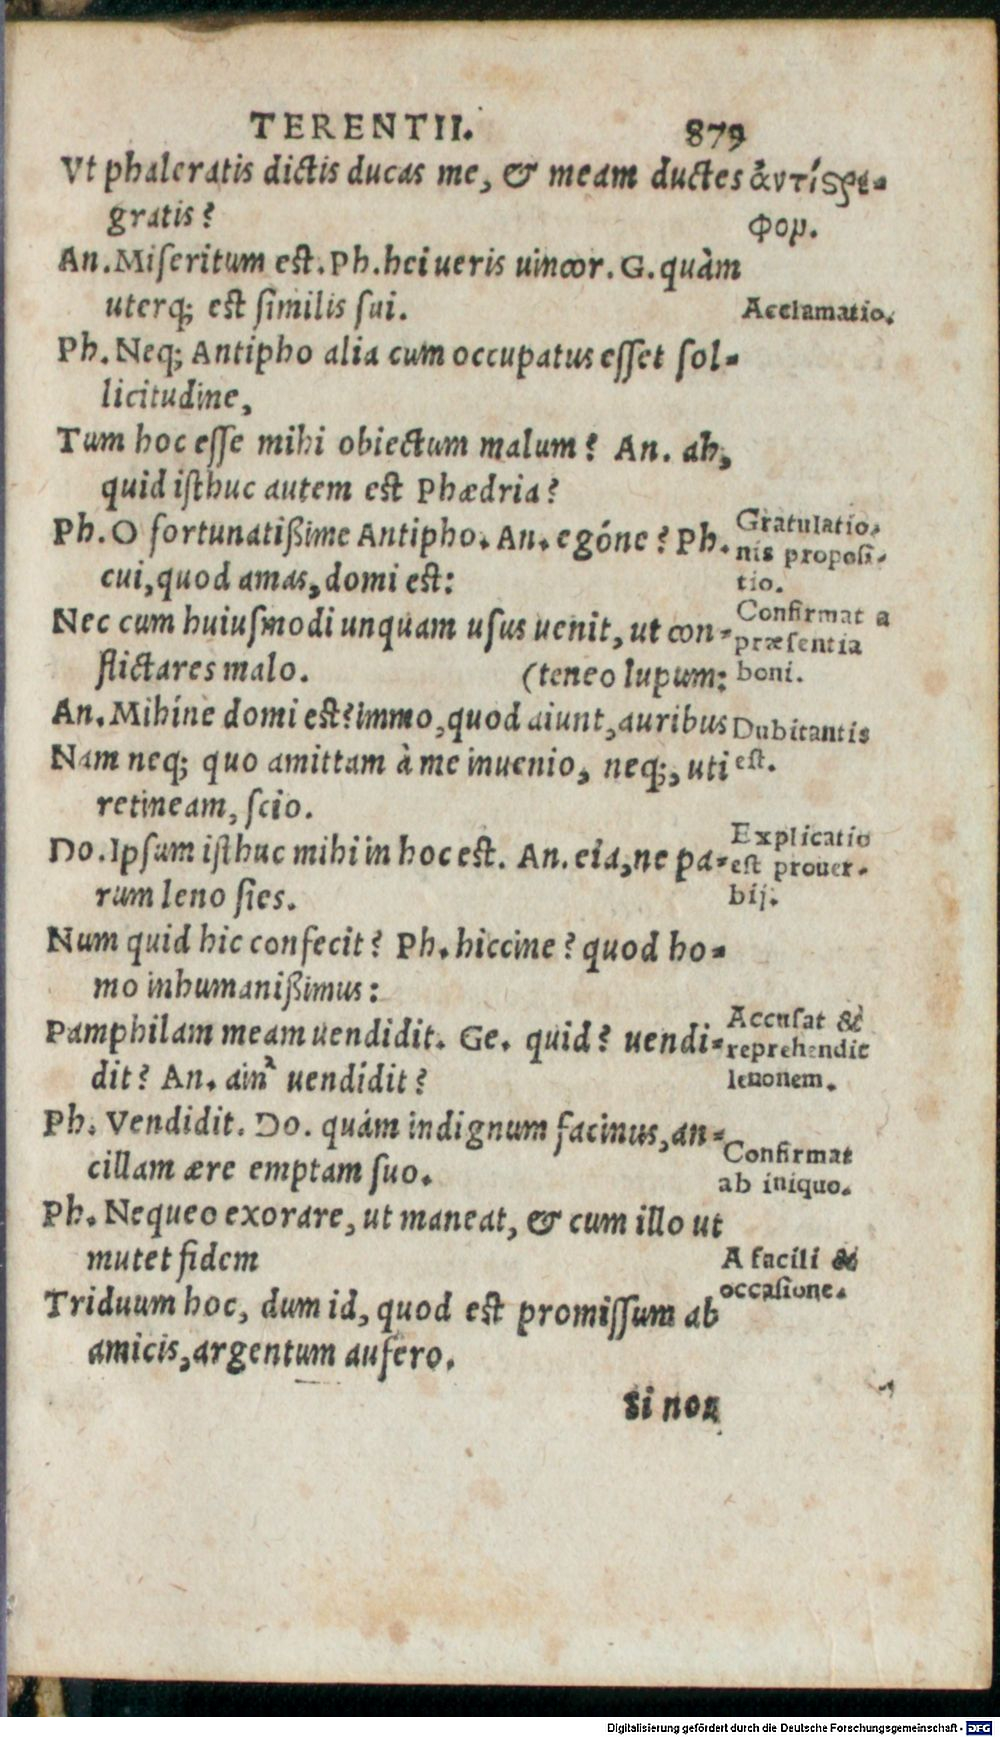 TERENTII. 879
Vt phaleratis dictis ducas me, & meam ductes
gratis?
ἀντίϛρε-
φον.
An. Miseritum est. Ph. hei ueris uincor. G. quàm
uterq; est similis sui.
Acclamatio.
Ph. Neq; Antipho alia cum occupatus esset sol-
licitudine,
Tum hoc esse mihi obiectum malum? An. ah,
quid isthuc autem est Phædria?
Ph. O fortunatißime Antipho. An. egóne? Ph.
cui, quod amas, domi est:
Gratulatio.
nis proposi-
tio.
Nec cum huiusmodi unquam usus uenit, ut con-
flictares malo. (teneo lupum:
Confirmat a
præsentia
boni.
An. Mihíne domi est? immo, quod aiunt, auribus
Nam neq; quo amittam à me inuenio, neq;, uti
retineam, scio.
Dubitantis
est.
Do. Ipsum isthuc mihi in hoc est. An. eia, ne pa-
rum leno sies.
Explicatio
est prouer-
bij.
Num quid hic confecit? Ph. hiccine? quod ho-
mo inhumanißimus:
Pamphilam meam uendidit. Ge. quid? uendi-
dit? An. ain' uendidit?
Accusat &
reprehendit
lenonem.
Ph. Vendidit. Do. quám indignum facinus, an-
cillam ære emptam suo.
Confirmat
ab iniquo.
Ph. Nequeo exorare, ut maneat, & cum illo ut
mutet fidem
A facili &
occasione.
Triduum hoc, dum id, quod est promissum ab
amicis, argentum aufero.
Si non
Digitalisierung gefördert durch die Deutsche Forschungsgemeinschaft - DFG